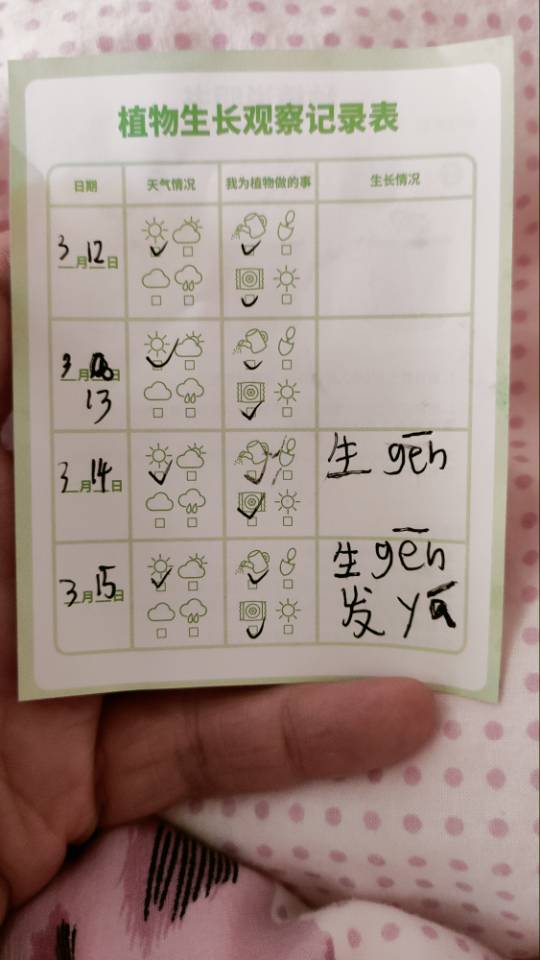 植物生长观察记录表
日期 天气情况 我为植物做的事 生长情况
3月12日
3月日
13
3月14日 生gēn
3月15日 生gēn
发yá